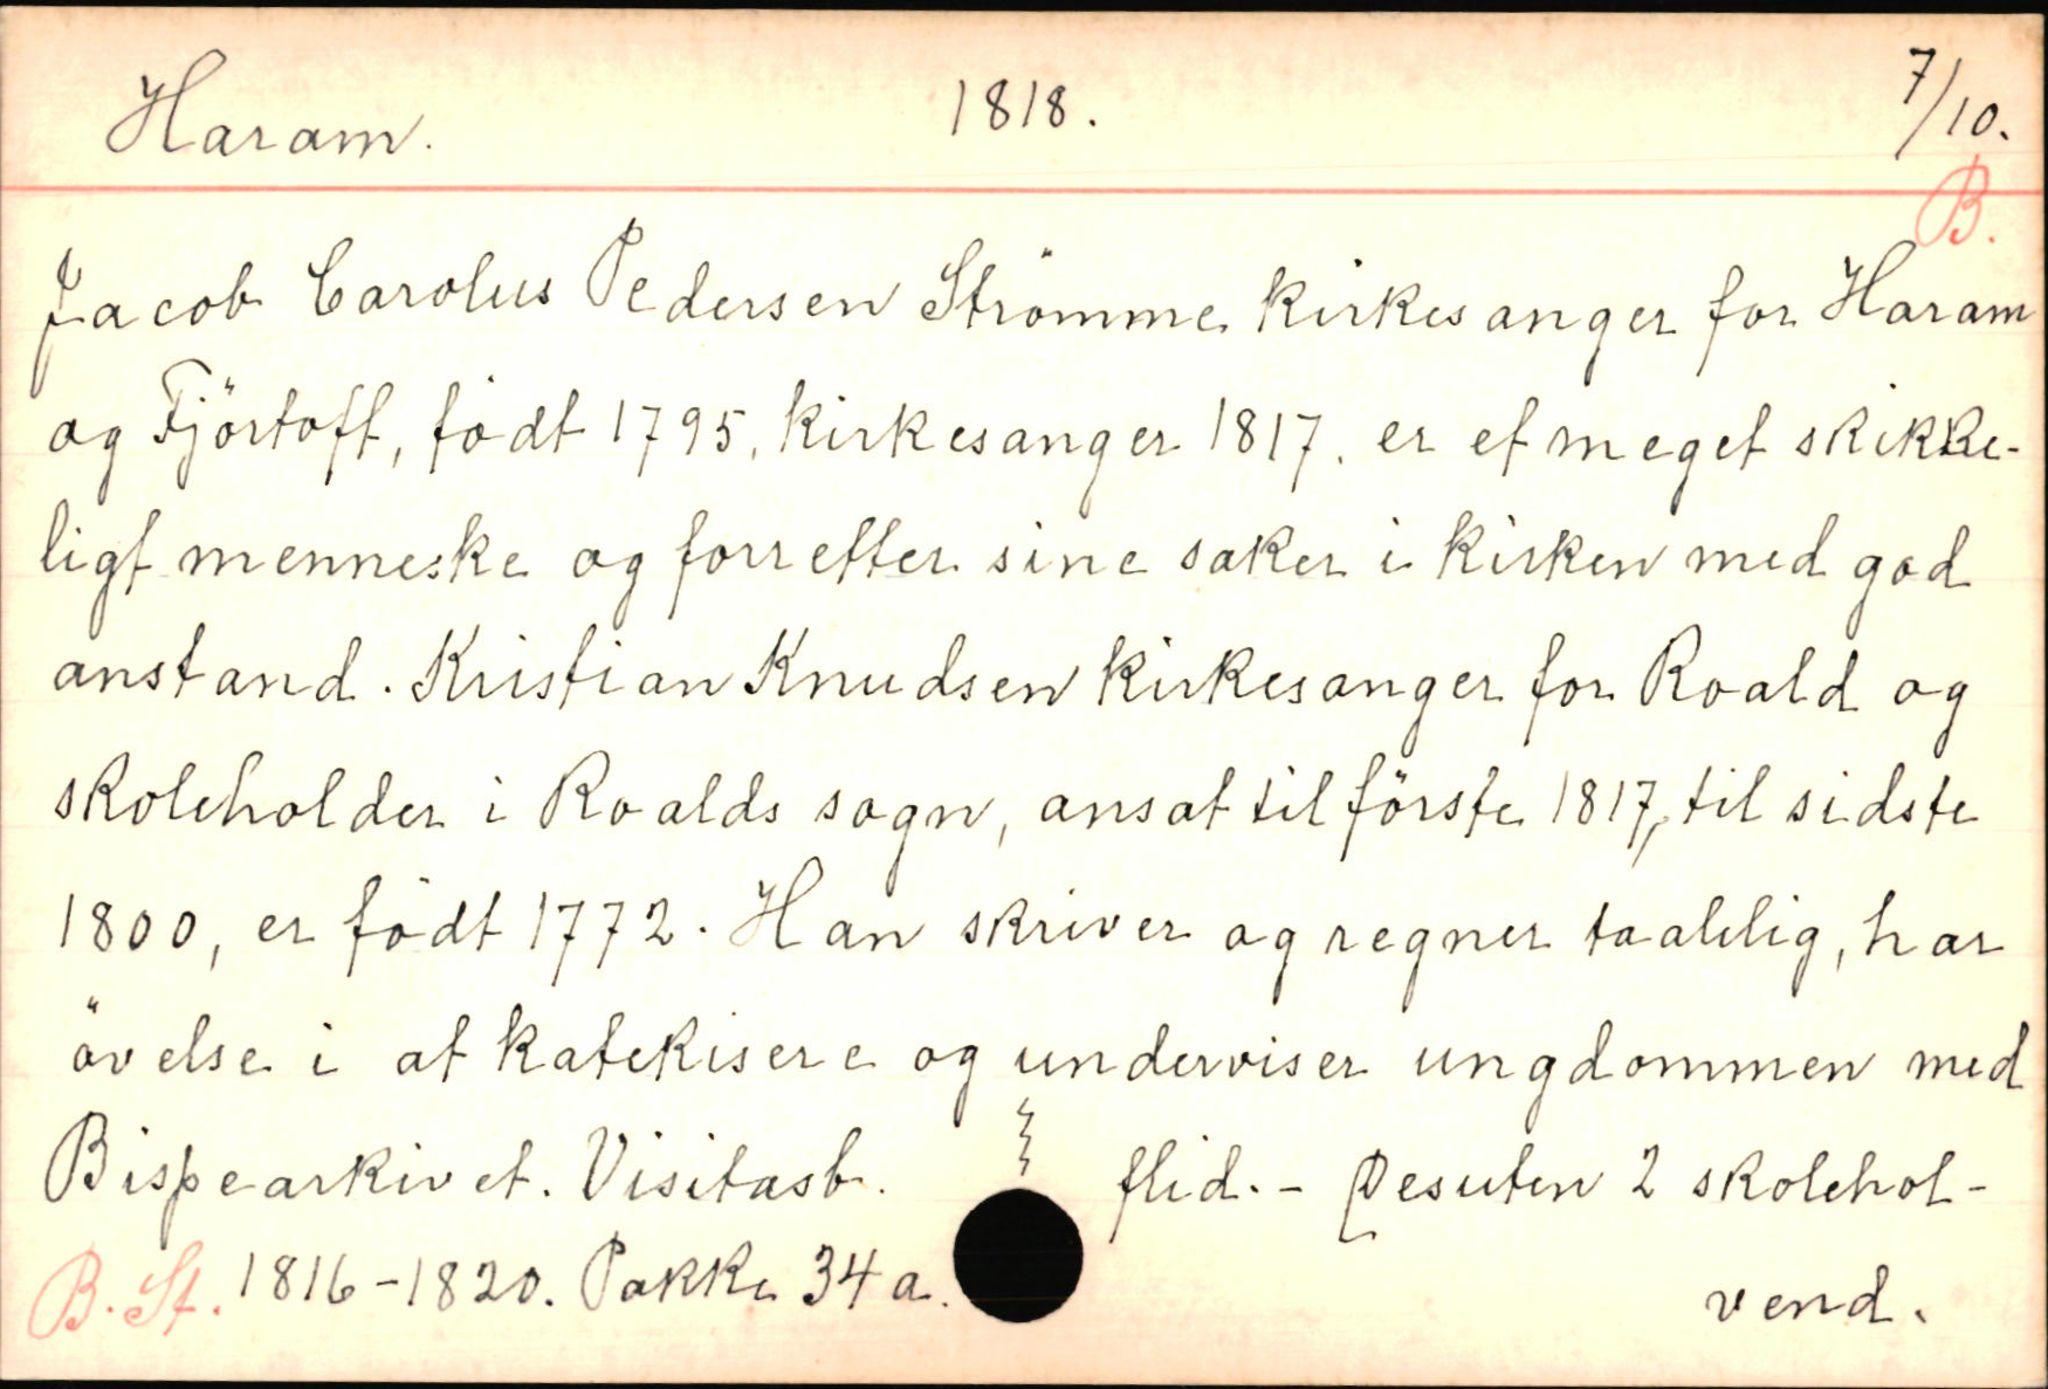 Haram. 1818. 7/10.
B.
Jacob Carolus Pedersen Strömme kirkesanger for Haram
og Fjörtoft, födt 1795, kirkesanger 1817. er et meget skikke-
ligt menneske og forretter sine saker i kirken med god
anstand. Kristian Knudsen kirkesanger for Roald og
skoleholder i Roalds sogn, ansat til förste 1817, til sidste
1800, er födt 1772. Han skriver og regner taalelig, har
övelse i at katekisere og underviser ungdommen med
flid. - Desuten 2 skolehol-
vend.
Bispearkivet. Visitasb.
B. St. 1816-1820. Pakke 34 a.